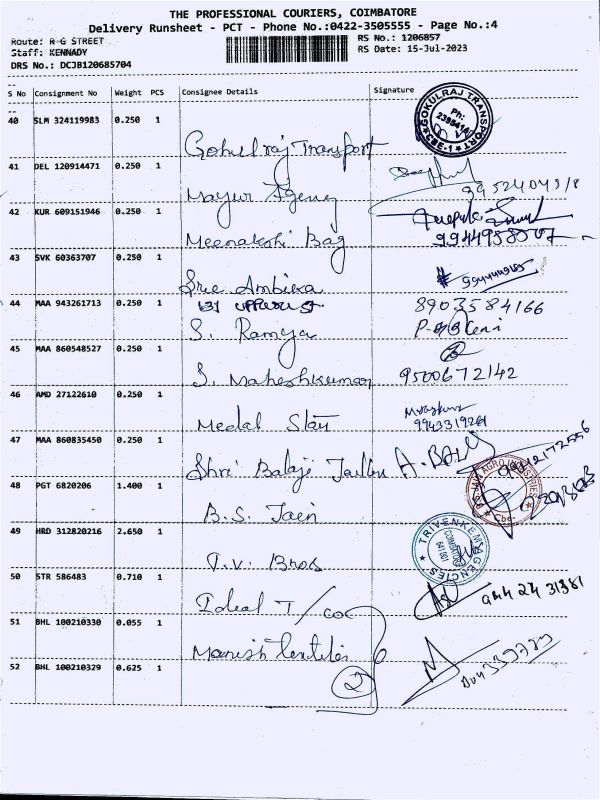 THE PROFESSIONAL COURIERS, COIMBATORE
Delivery Runsheet - PCT - Phone No.:0422-3505555 - Page No.:4
Route: R G STREET
RS No.: 1206857
Staff: KENNADY
RS Date: 15-Jul-2023
DRS No.: DCJB120685704
S No Consignment No Weight PCS Consignee Details Signature
40 SLM 324119983 0.250 1
GOKULRAJ TRANSPORT
Ph:
CBE-1
Gokulraj Transport
41 DEL 120914471 0.250 1
Mayur Agency
42 KUR 609151946 0.250 1
Meenakshi Bag
43 SVK 60363707 0.250 1
Sree Ambika
44 MAA 943261713 0.250 1
8903584166
S. Ramya
45 MAA 860548527 0.250 1
S. Maheshkumar 9500672142
46 AMD 27122610 0.250 1
9943319261
Medal Stan
47 MAA 860835450 0.250 1
Shri Balaji Tailor A. BALU
48 PGT 6820206 1.400 1
AGRO INDUSTRIES
B.S. Jain
49 HRD 312820216 2.650 1
TRIVENKEM AGENCIES
COIMBATORE
641 001
T.V. Bros
50 STR 586483 0.710 1
944 24 31381
Ideal T/coc
51 BHL 100210330 0.055 1
Manish textiles
52 BHL 100210329 0.625 1
2